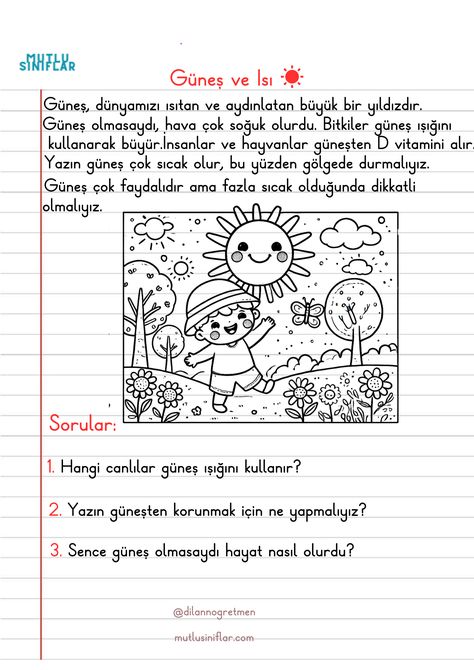 MUTLU
SINIFLAR
Güneş ve Isı
Güneş, dünyamızı ısıtan ve aydınlatan büyük bir yıldızdır.
Güneş olmasaydı, hava çok soğuk olurdu. Bitkiler güneş ışığını
kullanarak büyür.İnsanlar ve hayvanlar güneşten D vitamini alır.
Yazın güneş çok sıcak olur, bu yüzden gölgede durmalıyız.
Güneş çok faydalıdır ama fazla sıcak olduğunda dikkatli
olmalıyız.
Sorular:
1. Hangi canlılar güneş ışığını kullanır?
2. Yazın güneşten korunmak için ne yapmalıyız?
3. Sence güneş olmasaydı hayat nasıl olurdu?
@dilannogretmen
mutlusiniflar.com